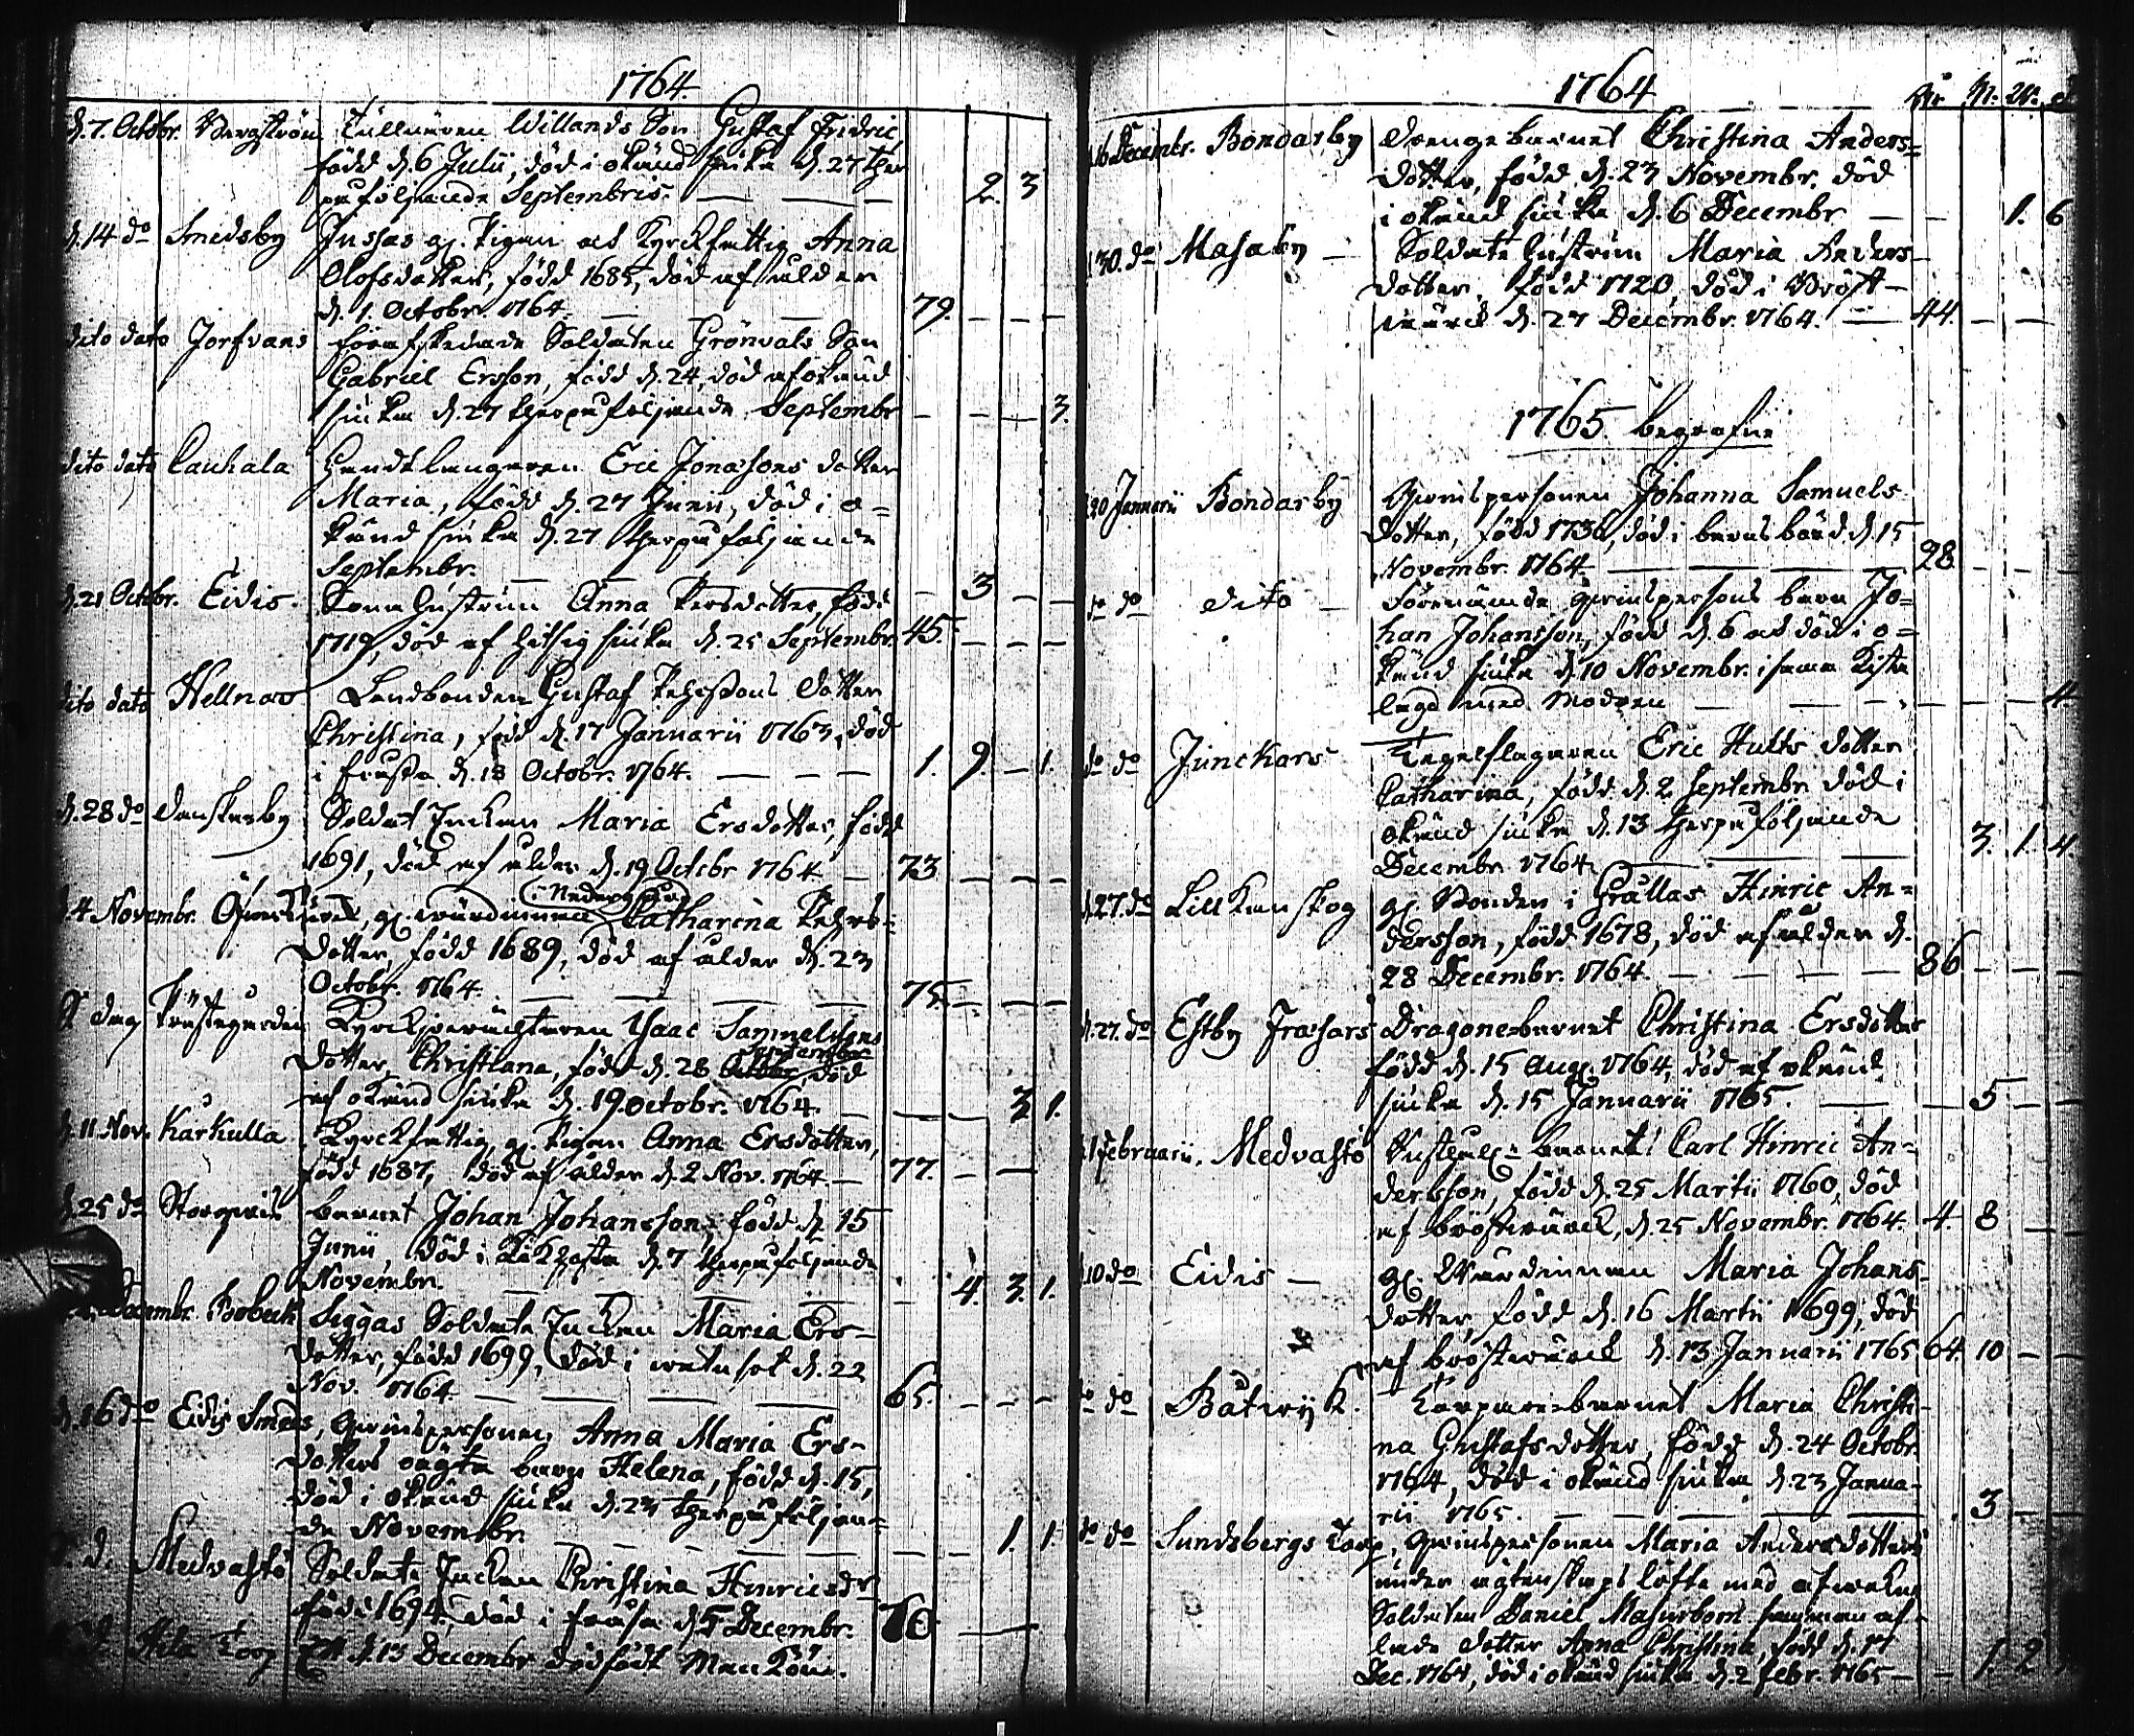 1764.
d. 7. Octobr. Bergström Tullnären Willands Son Gustaf Fridric,
född d. 6 Julii, död i okänd siuka d. 27 ther
påföljande Septembris. — 2. 3
d. 14 do Smedsby Jussas gl. Pigan och Kyrckfattig Anna
Olofsdotter, född 1685, död af ålder
d. 1. Octobr. 1764. — 79. — — —
dito dato Jorfvans förafskedade Soldaten Grönvals Son
Gabriel Ersson, född d. 24, död af okänd
siuka d. 27 therpåföljande Septembr — — — 3.
dito dato Cauhala Eric Jonassons dotter
Maria, född d. 27 Junii, död i o=
känd siuka d. 27 therpåföljande
Septembr. — — 3 — —
d. 21 Octobr. Eidis. Hustrun Anna Persdotter, född
1719, död af hitsig siuka d. 25 Septembr. 45. — — —
dito dato Hellnas Landbonden Gustaf dotter
Christina, född d. 17 Januarii 1763, död
i d. 18 Octobr. 1764. — — — 1. 9. — 1.
d. 28 do Danskarby Soldat Enckan Maria Ersdotter, född
1691, död af ålder d. 19 Octobr 1764 — 73 — — —
d. 4 Novembr. gl. wärdinnan Catharina
Nedergård
dotter, född 1689, död af ålder d. 23
Octobr. 1764. — — — 75. — — —
S. dag Prästegården Ysaac Sammelssons
dotter, Christiana, född d. 28 Octobr, död
Septembr
af okänd siuka d. 19. octobr. 1764. — — — 3. 1.
d. 11 Nov. Kårkulla Kyrckfattig, gl. Pigan Anna Ersdotter,
född 1687, död af ålder d. 2 Nov. 1764. — 77. — —
d. 25 do barnet Johan Johansson, född d. 15
Junii, död i Kikhosta d. 7 therpåföljande
Novembr. — — — — 4. 3. 1.
Decembr. Bobeck Siggas Soldats Enckan Maria Ers-
dotter, född 1699, död i d. 22
Nov. 1764 — — — 65. — — —
d. 16 do Eidis Smeds, Qvinspersonen Anna Maria Ers-
dotters oägta barn Helena, född d. 15,
död i okänd siuka d. 23 therpåföljan=
de Novembr. — — — 1. 1.
d. d. Medvastö Soldats Enckan Christina Hinricsdr
född 1694, död i d. 5 Decembr. 70 —
Torp d. 13 Decembr dödfödt Mankön.
1764 År M. W. d
16 Decembr. Bondarby Drengebarnet Christina Anders=
dotter, född d. 23 Novembr. död
i okänd siuka d. 6 Decembr — — 1. 6
30. do Masaby — Soldats hustrun Maria Anders-
dotter, född 1720, död i Bröst-
wärck d. 27 Decembr. 1764. — 44. — —
1765. begrafne
20 Januarii Bondarby Qvinspersonen Johanna Samuels
dotter, född 1736, död i barnsbörd d. 15
Novembr. 1764. — 28 — — —
do do dito — Förenämde qvinspersons barn Jo=
han Johansson, född d. 6 och död i o=
känd siuka d. 10 Novembr. i samma Kista
lagd med modren — — — — 4.
do do Junckars Tegelslagaren Eric Hults dotter
Catharina, född d. 2 Septembr död i
okänd siuka d. 13 therpåföljande
Decembr. 1764. — 3. 1. 4
d. 27. do Lill Kanskog gl. Bonden i Grållas Hinric An=
dersson, född 1678, död af ålder d.
28 Decembr. 1764. — — — 86 — — —
d. 27. do Estby Frasars Dragonebarnet Christina Ersdotter
född d. 15 Aug. 1764, död af okänd
siuka d. 15 Januarii 1765. — 5 — —
Februarii. Medvastö barnet Carl Hinric An=
dersson, född d. 25 Martii 1760, död
af bröstwärck, d. 25 Novembr. 1764. — 4. 8 —
10 do Eidis — gl. Wärdinnan Maria Johans-
dotter, född d. 16 Martii 1699, död
af bröstwärck d. 13 Januarii 1765 64 10 — —
do do Båtwyk. Torparebarnet Maria Christi-
na Ghustafsdotter, född d. 24 Octobr.
1764, död i okänd siuka d. 23 Janua-
rii 1765. — — — 3 — —
do do Sundsbergs Torp, Qvinspersonen Maria Andersdotters
under ägtenskaps löfte med
Soldaten Daniel Masurbom sammanaf-
lade dotter Anna Christina, född d.
Dec. 1764, död i okänd siuka d. 2 Febr. 1765 — — 1. 2